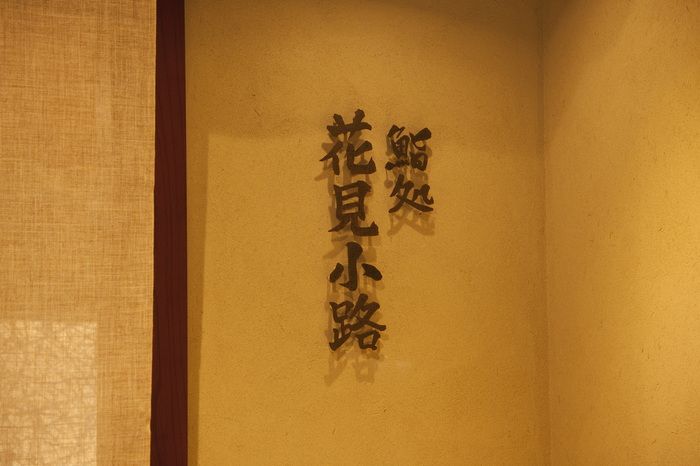 鮨処
花見小路